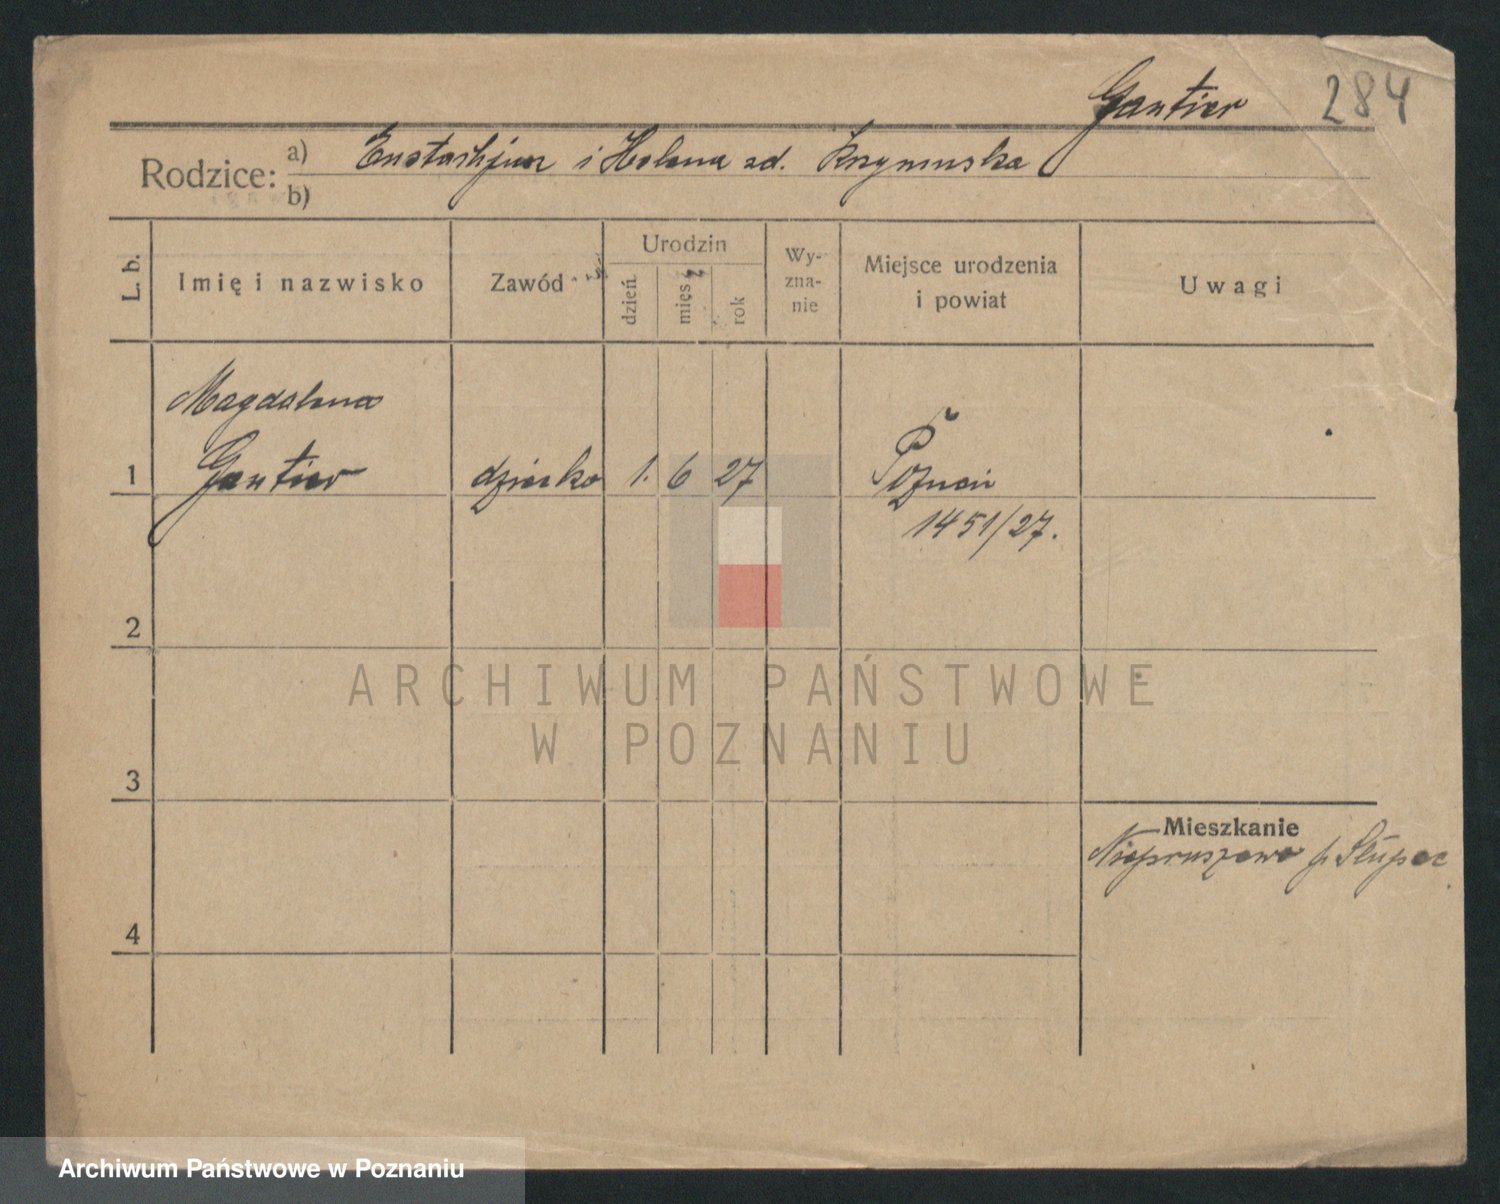 Gantier 284
Rodzice: a) Eustachjusz i Helena zd. Krzymuska
b)
L. b.
Imię i nazwisko
Zawód
Urodzin
dzień
mięs
rok
Wy-
zna-
nie
Miejsce urodzenia
i powiat
Uwagi
Magdalena
1 Gantier dziecko 1. 6 27 Poznań
1451/27.
2
ARCHIWUM PAŃSTWOWE
W POZNANIU
3
Mieszkanie
p. Słupca
4
Archiwum Państwowe w Poznaniu